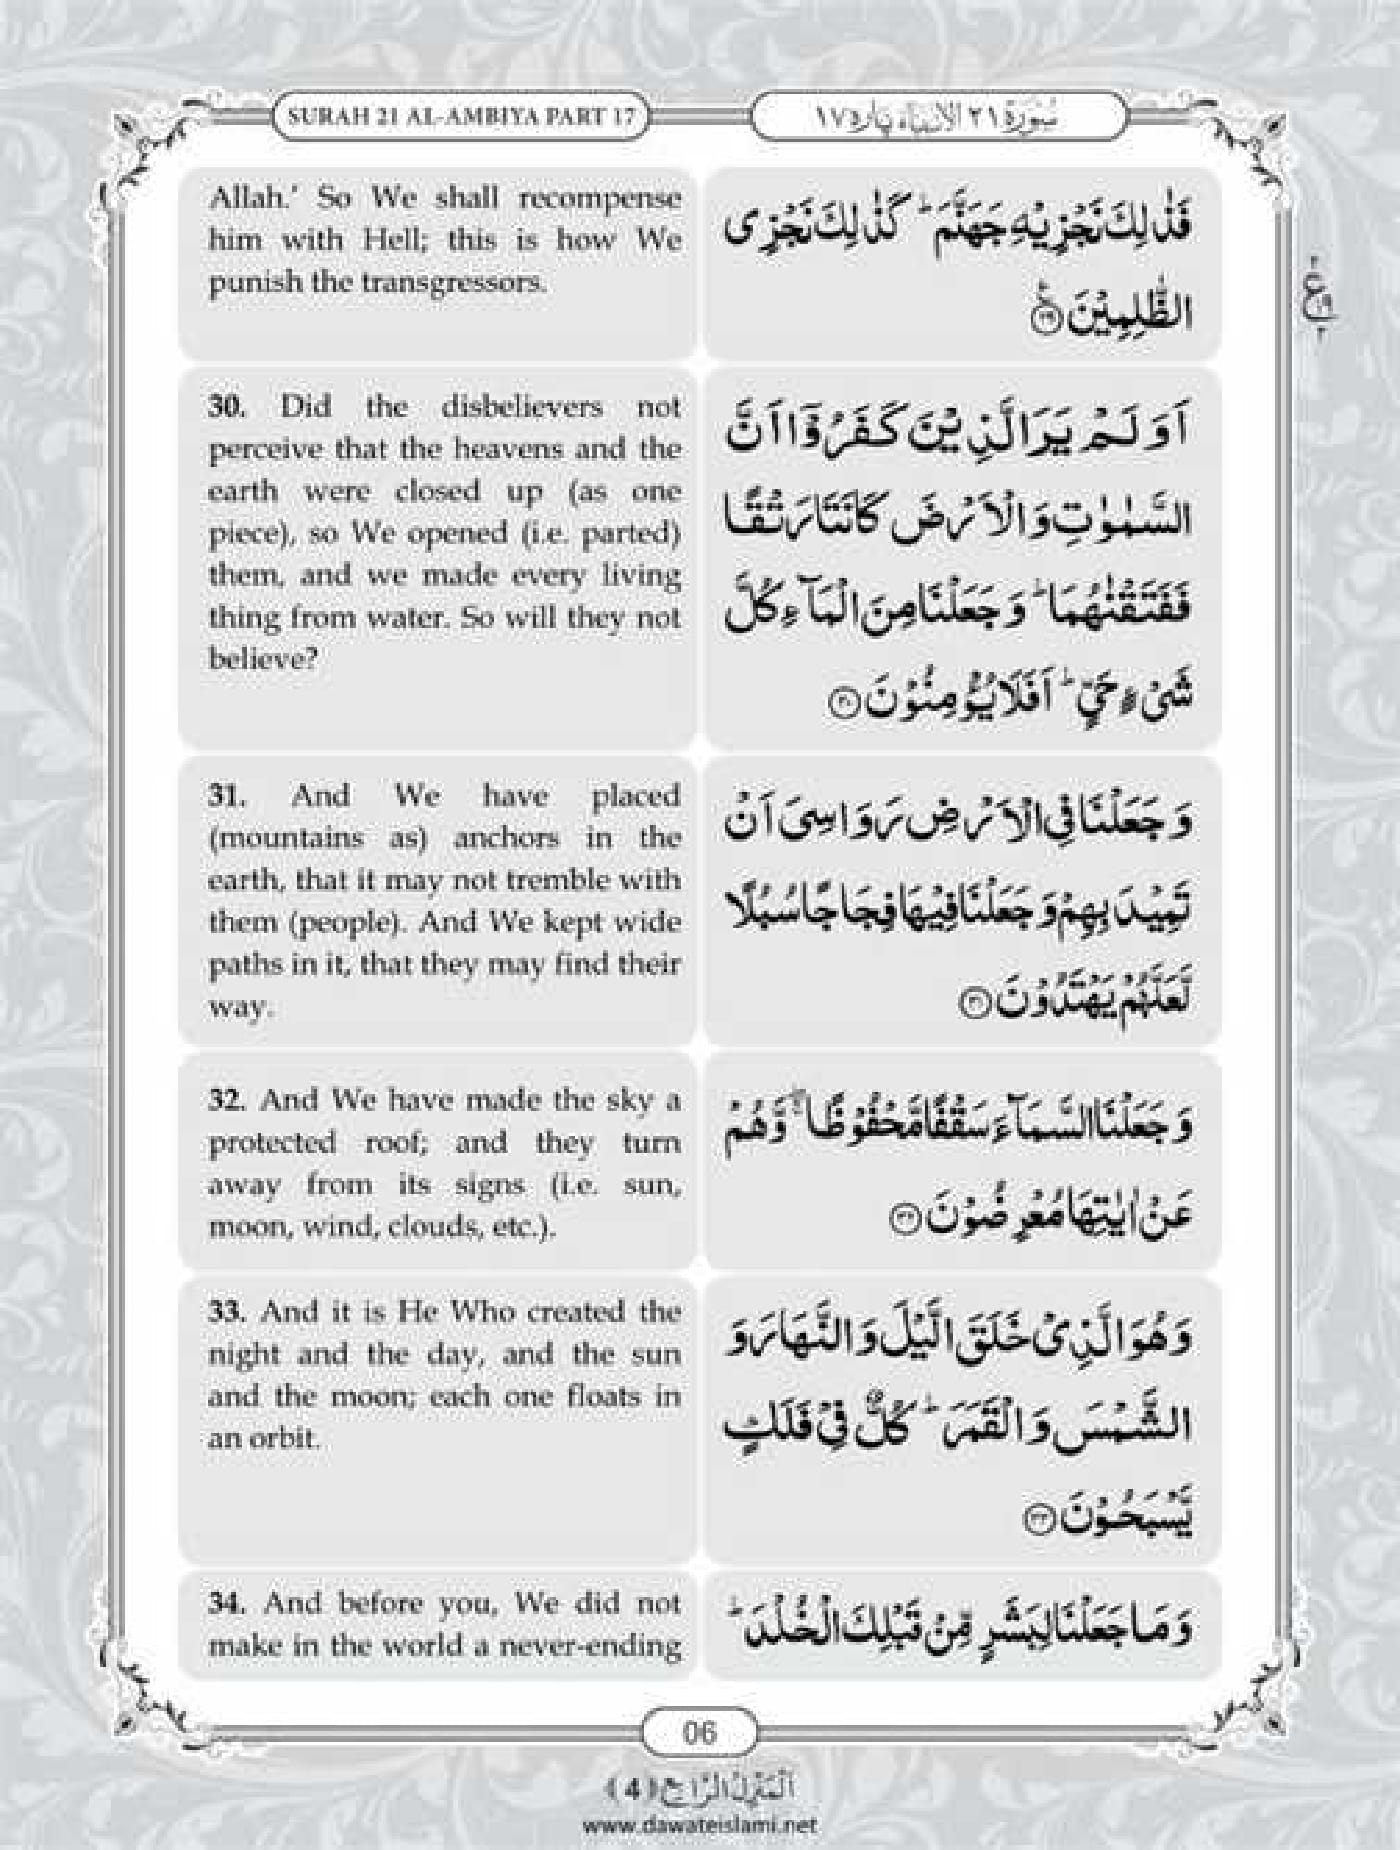 SURAH 21 AL-AMBIYA PART 17
سُوْرَة ٢١ الاَنبِيَآء پاره ١٧
Allah.’ So We shall recompense
him with Hell; this is how We
punish the transgressors.
فَذٰلِكَ نَجْزِيْهِ جَهَنَّمَ ؕ كَذٰلِكَ نَجْزِى
الظّٰلِمِيْنَ ﴿٢٩﴾
30. Did the disbelievers not
perceive that the heavens and the
earth were closed up (as one
piece), so We opened (i.e. parted)
them, and we made every living
thing from water. So will they not
believe?
اَوَ لَمْ يَرَ الَّذِيْنَ كَفَرُوْۤا اَنَّ
السَّمٰوٰتِ وَ الْاَرْضَ كَانَتَا رَتْقًا
فَفَتَقْنٰهُمَا ؕ وَ جَعَلْنَا مِنَ الْمَآءِ كُلَّ
شَىْءٍ حَيٍّ ؕ اَفَلَا يُؤْمِنُوْنَ ﴿٣٠﴾
31. And We have placed
(mountains as) anchors in the
earth, that it may not tremble with
them (people). And We kept wide
paths in it, that they may find their
way.
وَ جَعَلْنَا فِى الْاَرْضِ رَوَاسِىَ اَنْ
تَمِيْدَ بِهِمْ وَ جَعَلْنَا فِيْهَا فِجَاجًا سُبُلًا
لَّعَلَّهُمْ يَهْتَدُوْنَ ﴿٣١﴾
32. And We have made the sky a
protected roof; and they turn
away from its signs (i.e. sun,
moon, wind, clouds, etc.).
وَ جَعَلْنَا السَّمَآءَ سَقْفًا مَّحْفُوْظًا ۖۚ وَّ هُمْ
عَنْ اٰيٰتِهَا مُعْرِضُوْنَ ﴿٣٢﴾
33. And it is He Who created the
night and the day, and the sun
and the moon; each one floats in
an orbit.
وَ هُوَ الَّذِىْ خَلَقَ الَّيْلَ وَ النَّهَارَ وَ
الشَّمْسَ وَ الْقَمَرَ ؕ كُلٌّ فِىْ فَلَكٍ
يَّسْبَحُوْنَ ﴿٣٣﴾
34. And before you, We did not
make in the world a never-ending
وَ مَا جَعَلْنَا لِبَشَرٍ مِّنْ قَبْلِكَ الْخُلْدَ ؕ
06
اَلْمَنْزِلُ الرَّابِع (4)
www.dawateislami.net